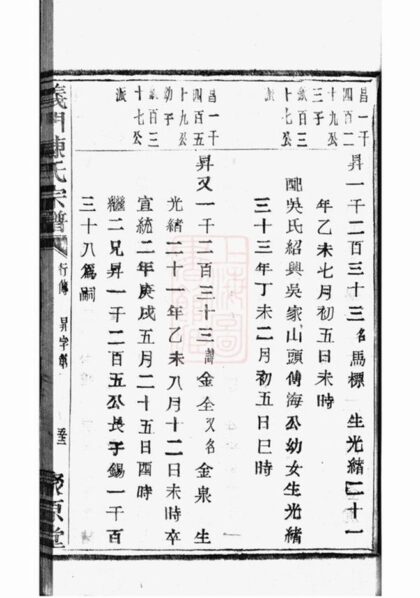 昌一千
四百二
十九公
三子
派百三
十七公
派
昇一千二百三十三名馬標 生光緒二十一
年乙未七月初五日未時
配吳氏紹興吳家山頭傅海公幼女生光緒
三十三年丁未二月初五日巳時
昌一千
四百五
十九公
幼子
派百三
十七公
派
昇又一千二百三十三諱金全又名金泉 生
光緒二十一年乙未八月十二日未時卒
宣統二年庚戌五月二十五日酉時
繼二兄昇一千二百五公長子錫一千百
三十八爲嗣
義門陳氏宗譜 行傳 昇字部 聚原堂